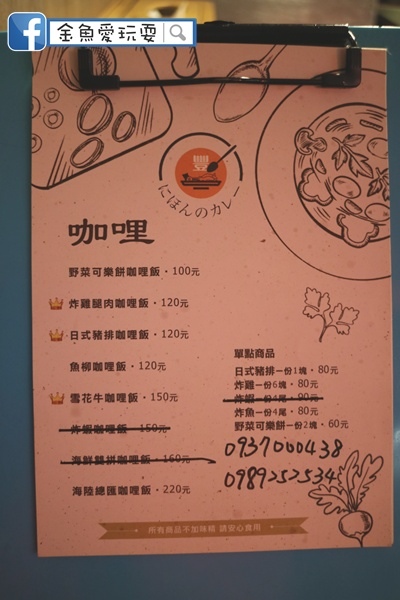 金魚愛玩耍
豐
にほんのカレー
咖哩
野菜可樂餅咖哩飯・100元
炸雞腿肉咖哩飯・120元
日式豬排咖哩飯・120元
魚柳咖哩飯・120元
雪花牛咖哩飯・150元
炸蝦咖哩飯・150元
海鮮雙拼咖哩飯・160元
海陸總匯咖哩飯・220元
單點商品
日式豬排一份1塊・80元
炸雞一份6塊・80元
炸蝦一份4尾・90元
炸魚一份4尾・80元
野菜可樂餅一份2塊・60元
0937000438
0989252534
所有商品不加味精 請安心食用